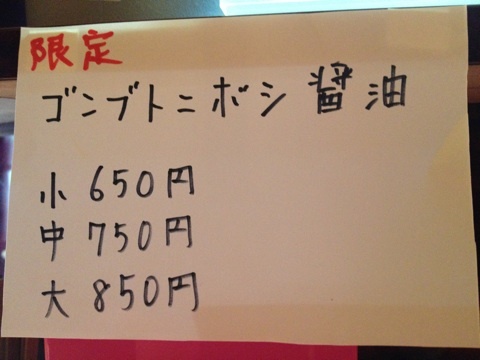 限定
ゴンブトニボシ醤油
小 650円
中 750円
大 850円